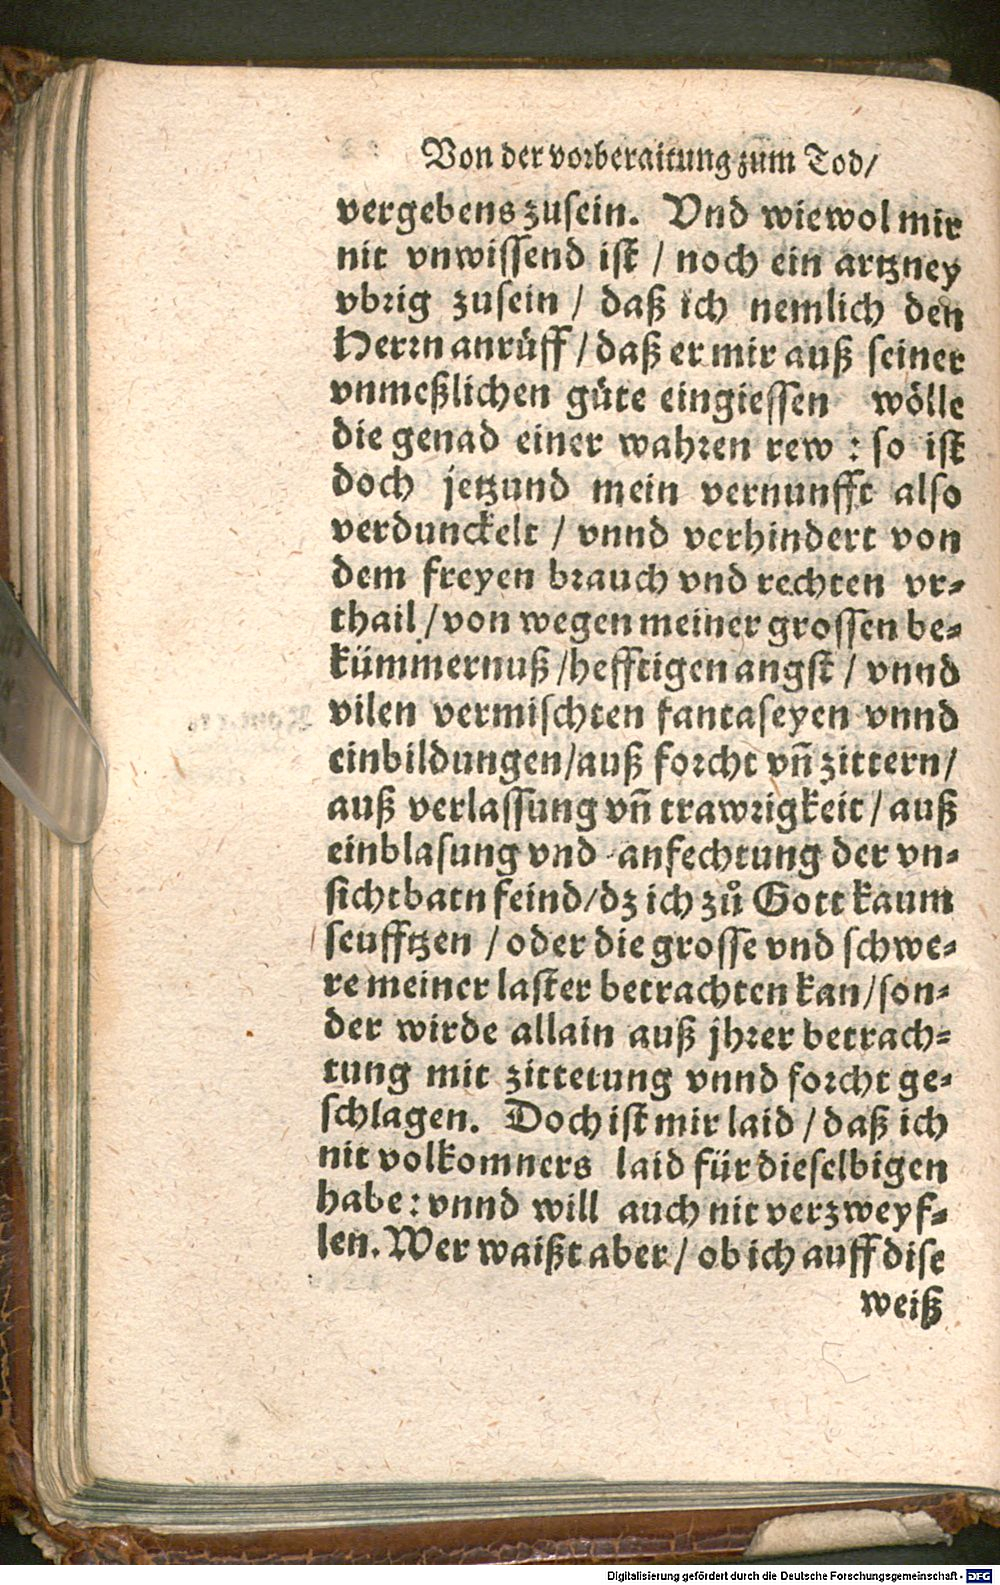 Von der vorberaitung zum Tod/
vergebens zusein. Vnd wiewol mir
nit vnwissend ist / noch ein artzney
vbrig zusein / daß ich nemlich den
Herrn anrüff / daß er mir auß seiner
vnmeßlichen güte eingiessen wölle
die genad einer wahren rew : so ist
doch jetzund mein vernunfft also
verdunckelt / vnnd verhindert von
dem freyen brauch vnd rechten vr-
thail / von wegen meiner grossen be-
kümmernuß / hefftigen angst / vnnd
vilen vermischten fantaseyen vnnd
einbildungen/auß forcht vñ zittern/
auß verlassung vñ trawrigkeit / auß
einblasung vnd anfechtung der vn-
sichtbarn feind/dz ich zů Gott kaum
seufftzen / oder die grosse vnd schwe-
re meiner laster betrachten kan/son-
der wirde allain auß jhrer betrach-
tung mit zitterung vnnd forcht ge-
schlagen. Doch ist mir laid / daß ich
nit volkomners laid für dieselbigen
habe: vnnd will auch nit verzweyf-
len. Wer waißt aber / ob ich auff dise
weiß
Digitalisierung gefördert durch die Deutsche Forschungsgemeinschaft - DFG